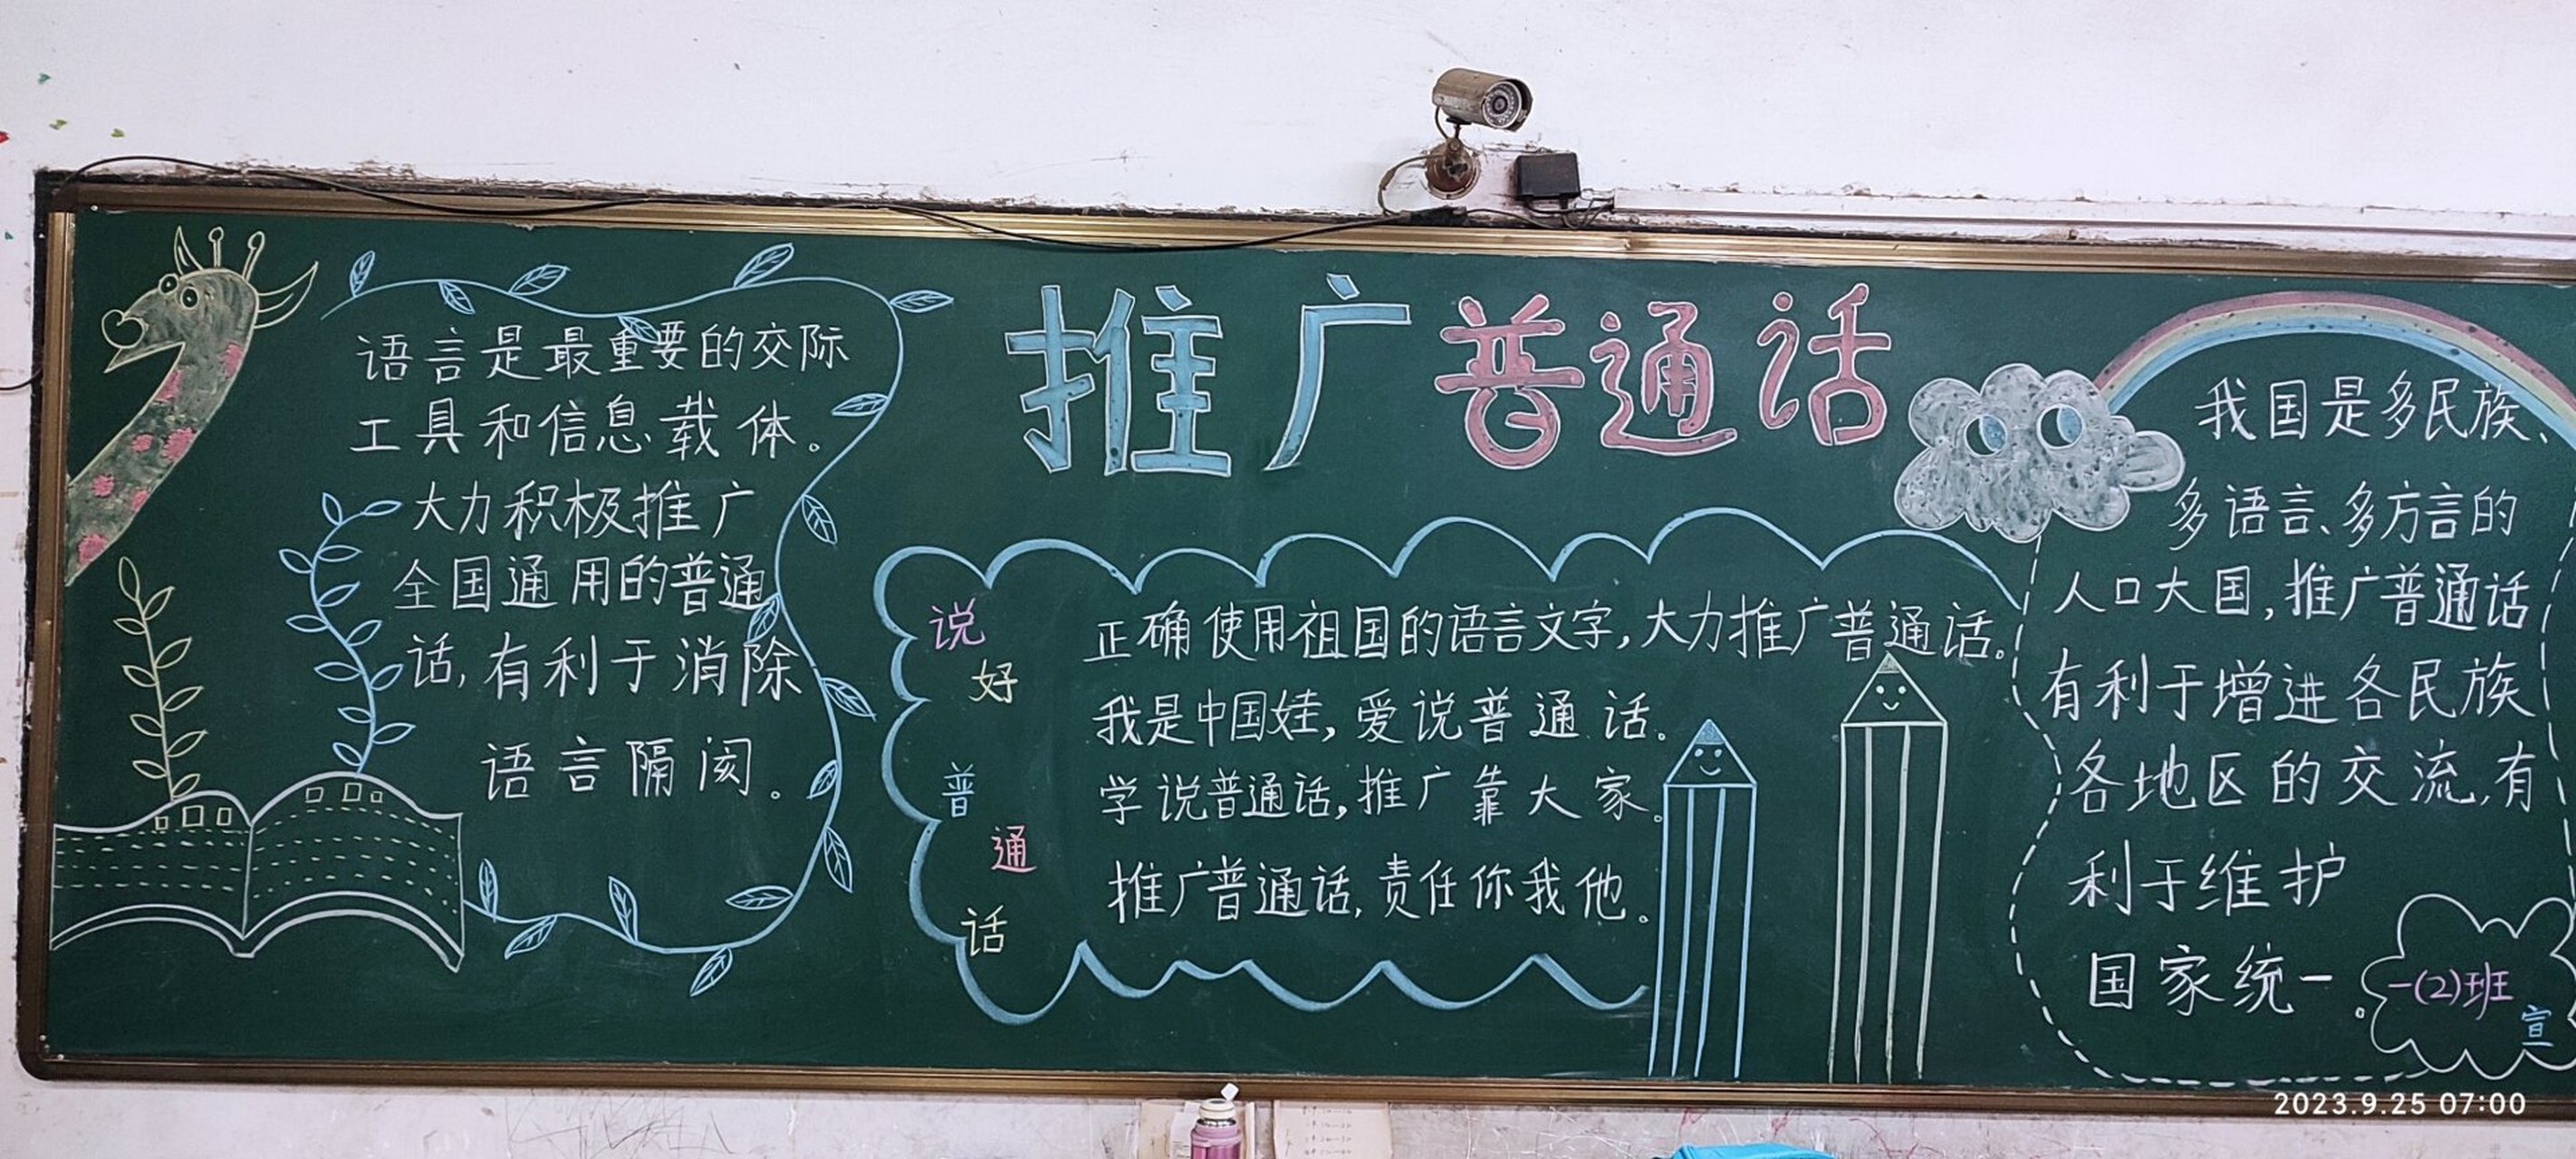 推广普通话
语言是最重要的交际
工具和信息载体。
大力积极推广
全国通用的普通
话,有利于消除
语言隔阂。
说
好
普
通
话
正确使用祖国的语言文字,大力推广普通话。
我是中国娃,爱说普通话。
学说普通话,推广靠大家。
推广普通话,责任你我他。
我国是多民族、
多语言、多方言的
人口大国,推广普通话
有利于增进各民族
各地区的交流,有
利于维护
国家统一。
一(2)班
宣
2023.9.25 07:00